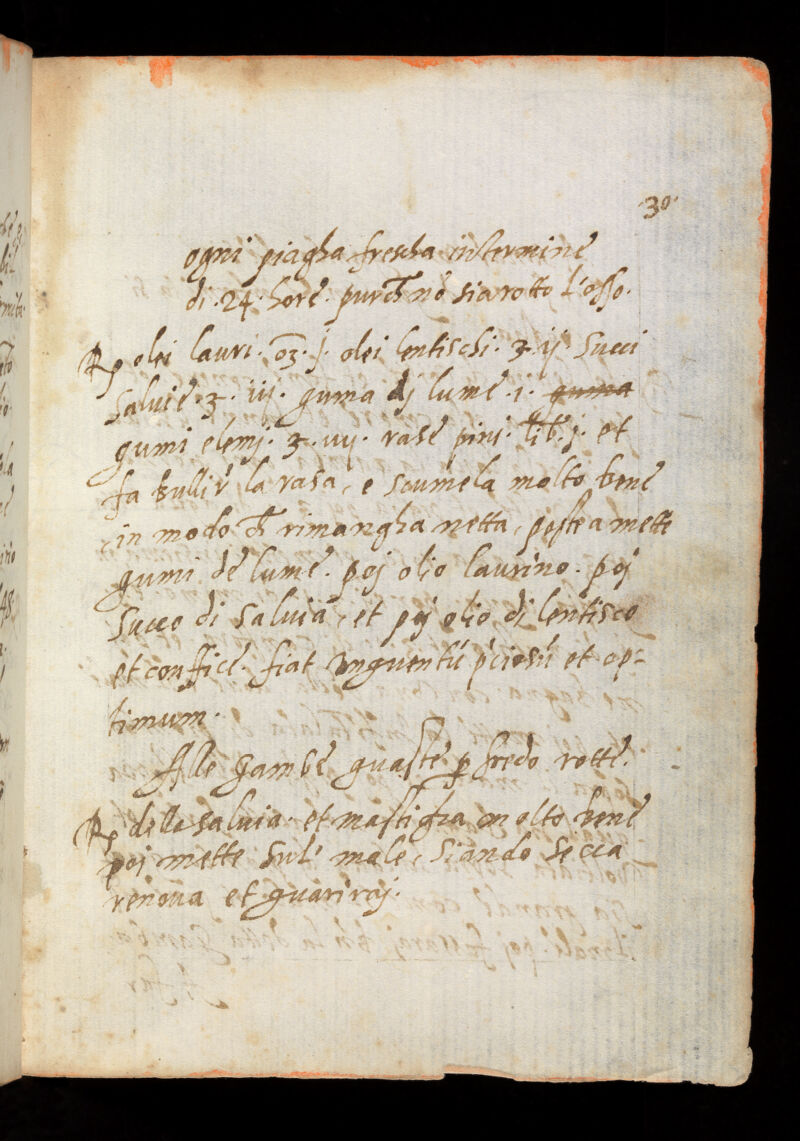 30
ogni piagha frescha in termine
di .24. hore. purch̄ nō sia rotto l'osso.
Rp olei lauri. oz. j. olei lentischi. ʒ. ij. succi
salvie. ʒ. iij. guma dj lume .i. guma
gumi elemj. ʒ. iiij. rase pini. lib. j. et
fa bullir la rasa, e scumela molto bene
in modo ch̄ rimangha netta, postea mette
gumi de lume. poj olio laurino. poj
succo di salvia, et poj olio di lentisco
et confice. fiat unguentū p̄ciosū et op=
timum.
Alle gambe guaste p̱ fredo rotte.
Rp della salvia. et mastigha molto bene
poj mette sul' male, siando secca
renova et guariraj.